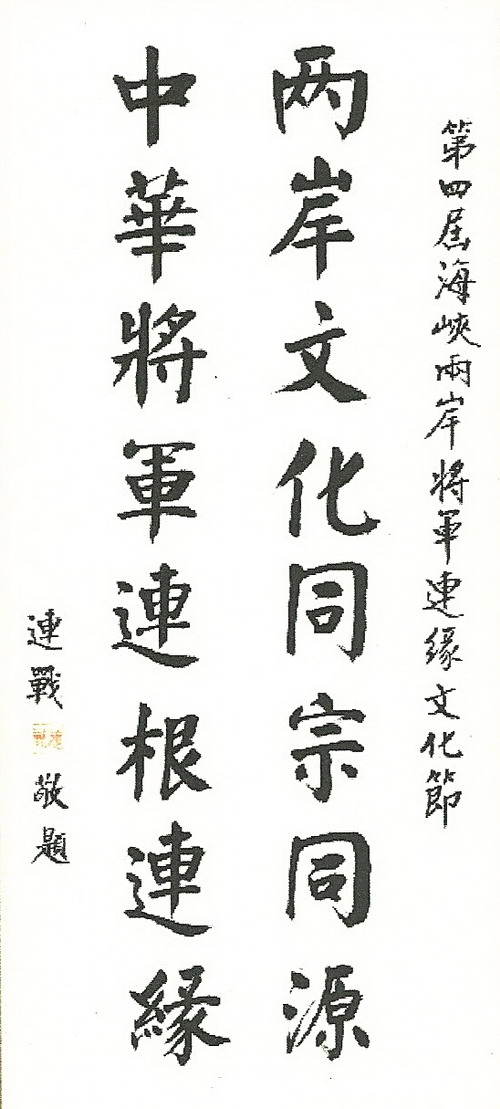 第四届海峽兩岸将军連缘文化節
两岸文化同宗同源
中華將軍連根連緣
連戰
敬題